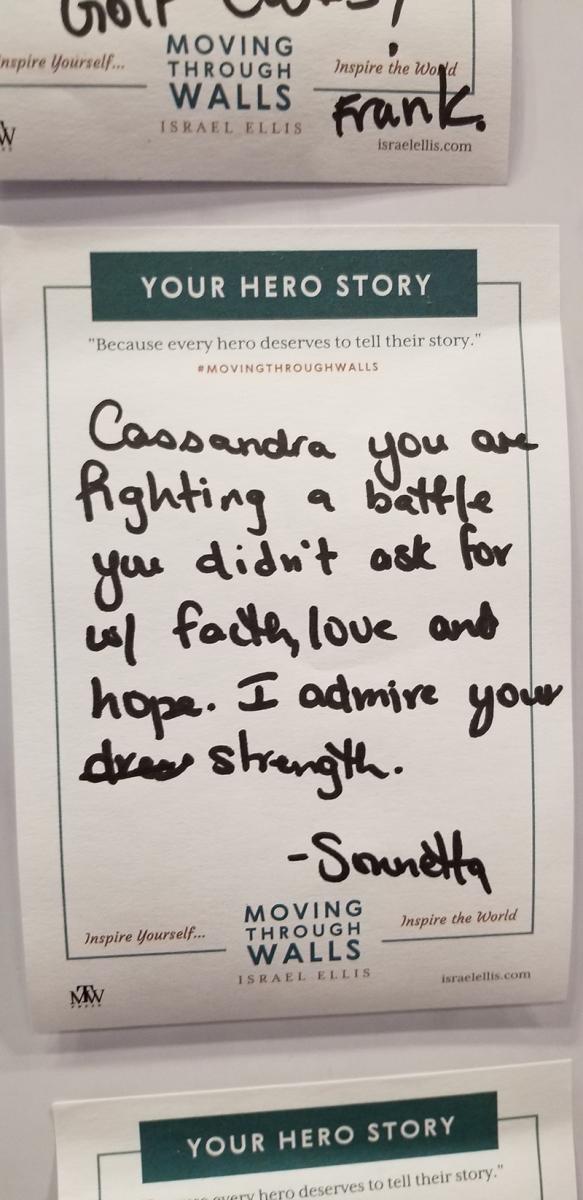 Golf
MOVING
THROUGH
WALLS
ISRAEL ELLIS
nspire Yourself...
Inspire the World
Frank.
israelellis.com
W
YOUR HERO STORY
"Because every hero deserves to tell their story."
#MOVINGTHROUGHWALLS
Cassandra you are
fighting a battle
you didn't ask for
w/ faith, love and
hope. I admire your
strength.
-Sonnetta
MOVING
THROUGH
WALLS
ISRAEL ELLIS
Inspire Yourself...
Inspire the World
MTW
israelellis.com
YOUR HERO STORY
every hero deserves to tell their story."